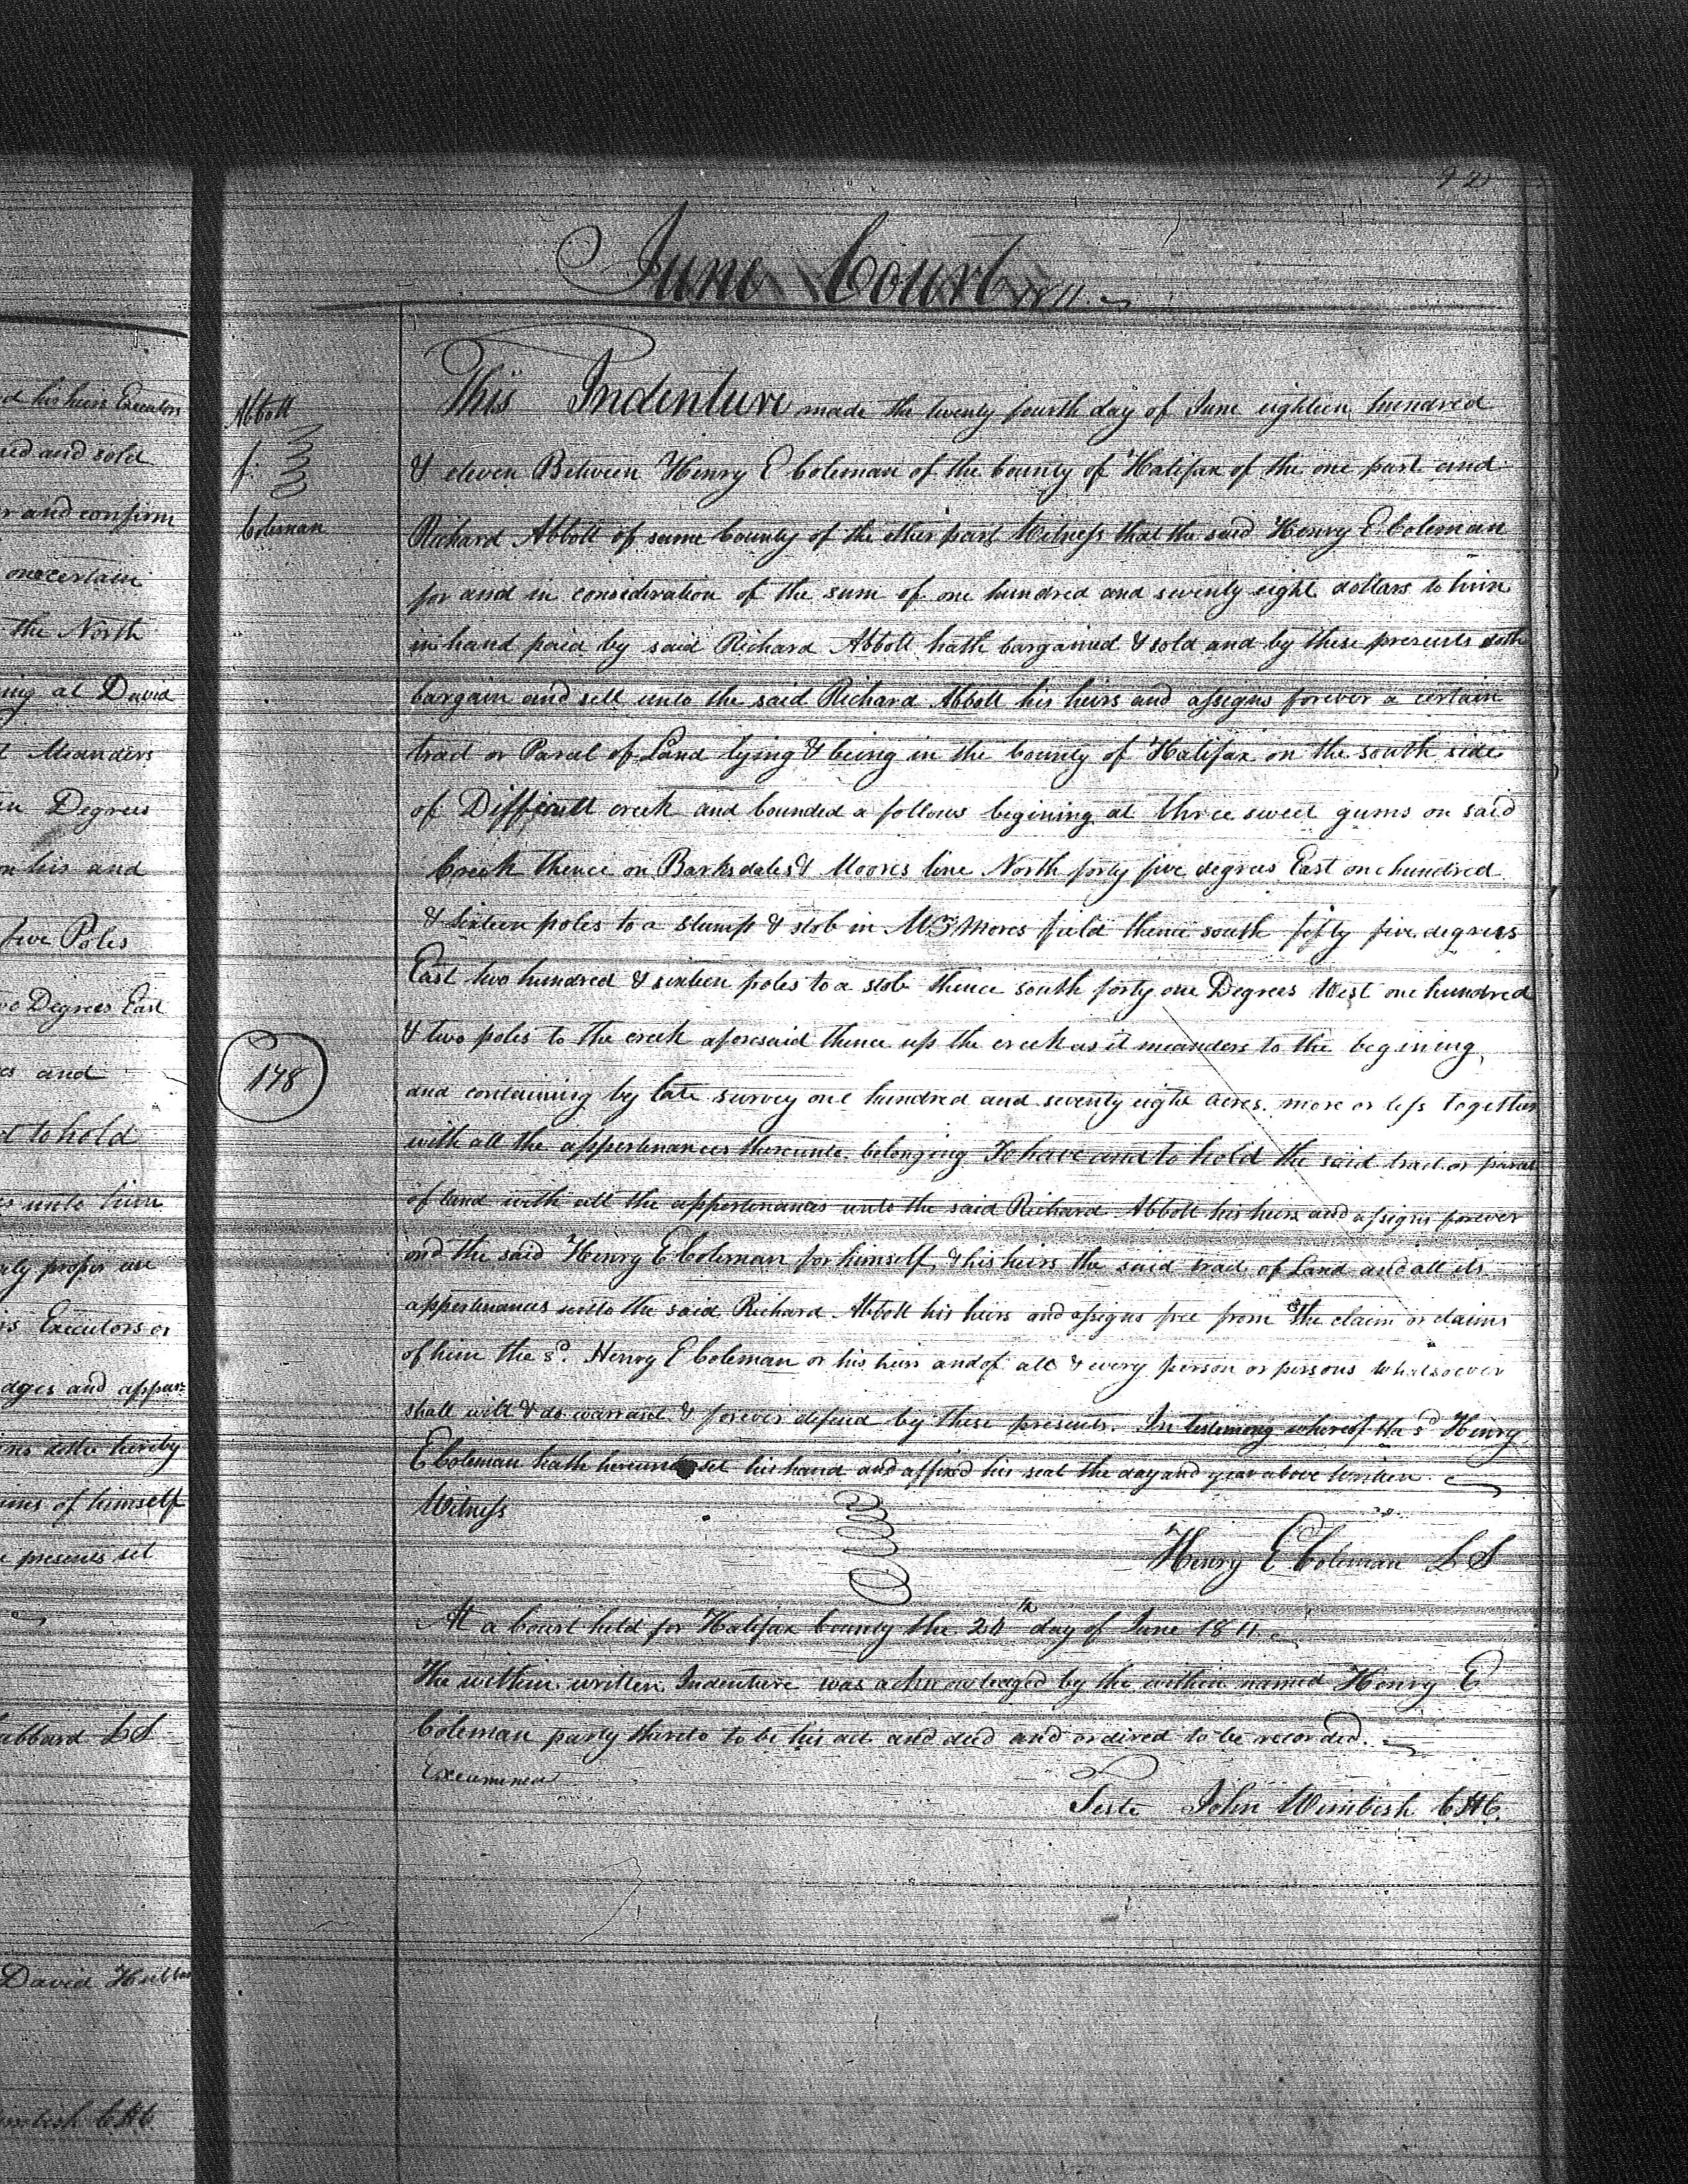 June Court 1811
This Indenture made the twenty fourth day of June eighteen hundred
& eleven Between Henry E Coleman of the County of Halifax of the one part and
Richard Abbott of same County of the other part Witness that the said Henry E Coleman
for and in consideration of the sum of one hundred and seventy eight dollars to him
in hand paid by said Richard Abbott hath bargained & sold and by these presents doth
bargain and sell unto the said Richard Abbott his heirs and assigns forever a certain
tract or Parcel of Land lying & being in the County of Halifax on the south side
of Difficult creek and bounded a follows begining at three sweet gums on said
Creek thence on Barksdales & Moores line North forty five degrees East one hundred
& sixteen poles to a stump & stob in Mores field thence south fifty five degrees
East two hundred & sixteen poles to a stob thence south forty one Degrees West one hundred
& two poles to the creek aforesaid thence up the creek as it meanders to the begining
and containing by late survey one hundred and seventy eight acres more or less together
with all the appertenances thereunto belonging To have and to hold the said tract or parcel
of land with all the appertenances unto the said Richard Abbott his heirs and assigns forever
and the said Henry E Coleman for himself & his heirs the said tract of Land and all its
appertenances unto the said Richard Abbott his heirs and assigns free from the claim or claims
of him the sd. Henry E Coleman or his heirs and of all & every person or persons whatsoever
shall will & do warrant & forever defend by these presents. In testimony whereof the sd Henry
E Coleman hath hereunto set his hand and affixed his seal the day and year above written
Witness
Henry E Coleman LS
At a Court held for Halifax County the 24th day of June 1811
The within written Indenture was acknowledged by the within named Henry E
Coleman party thereto to be his act and deed and ordired to be recorded.
Examined
Teste John Wimbish CHC.
Abbott
f:
Coleman
178
d his heirs Executors
and sold
r and confirm
one certain
the North
ing at David
Meanders
Degrees
and
five Poles
Degrees East
and
to hold
unto him
proper use
is Executors or
ages and appur
hereby
of himself
presents set
ubbard LS
David Hubba
CHC